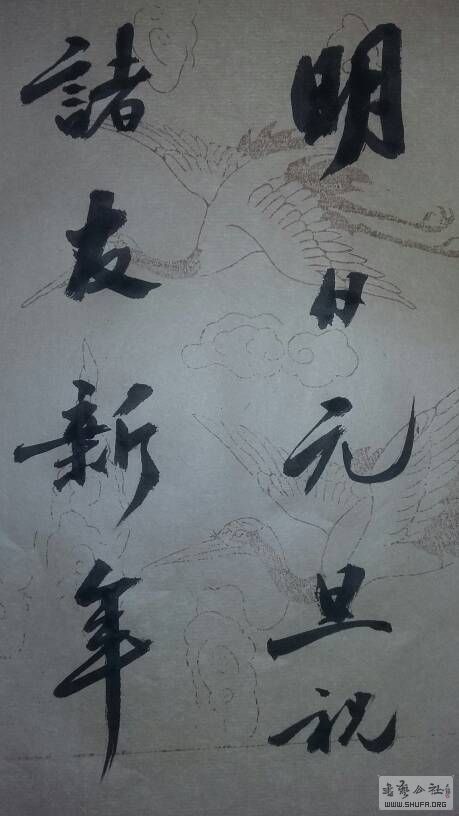 明日元旦祝
諸友新年
书艺公社
WWW.SHUFA.ORG